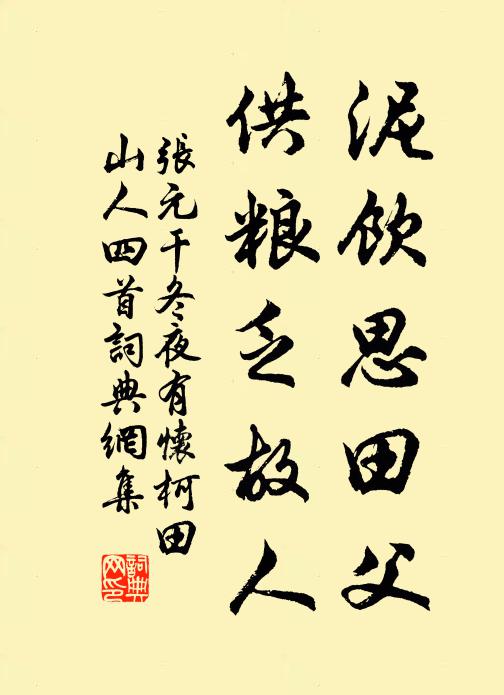 泥飲思田父
供粮乏故人
張元干冬夜有懷柯田
山人四首詞典網集
詞典
网印